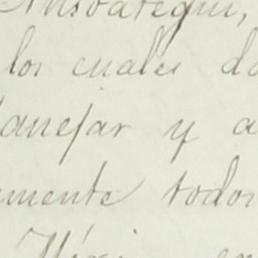 Ansoategui,
los cuales do
anejar y a
mente todos